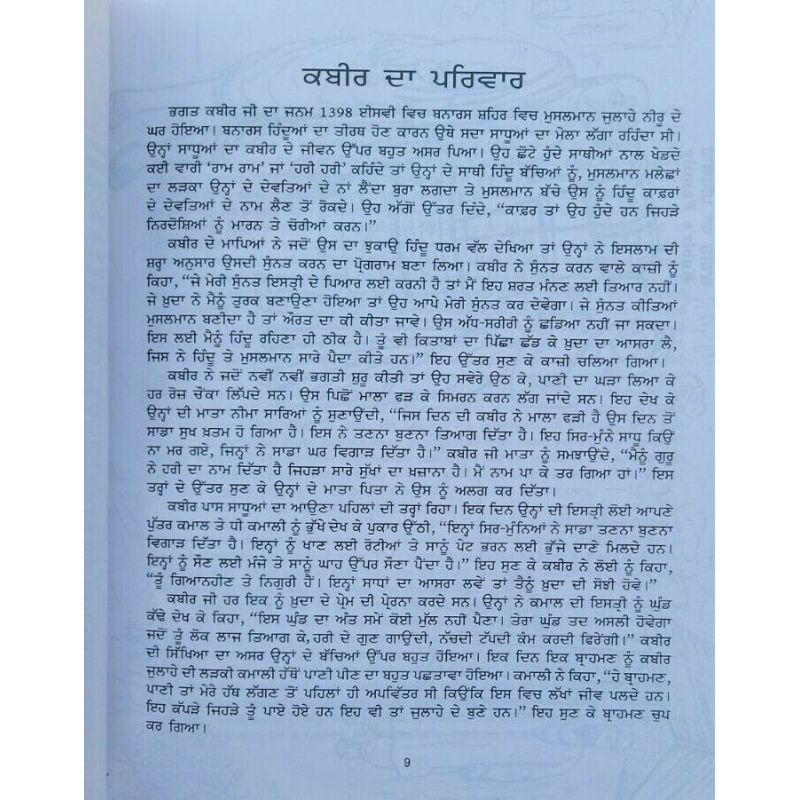 ਕਬੀਰ ਦਾ ਪਰਿਵਾਰ
ਭਗਤ ਕਬੀਰ ਜੀ ਦਾ ਜਨਮ 1398 ਈਸਵੀ ਵਿਚ ਬਨਾਰਸ ਸ਼ਹਿਰ ਵਿਚ ਮੁਸਲਮਾਨ ਜੁਲਾਹੇ ਨੀਰੂ ਦੇ
ਘਰ ਹੋਇਆ। ਬਨਾਰਸ ਹਿੰਦੂਆਂ ਦਾ ਤੀਰਥ ਹੋਣ ਕਾਰਨ ਉਥੇ ਸਦਾ ਸਾਧੂਆਂ ਦਾ ਮੇਲਾ ਲੱਗਾ ਰਹਿੰਦਾ ਸੀ।
ਉਨ੍ਹਾਂ ਸਾਧੂਆਂ ਦਾ ਕਬੀਰ ਦੇ ਜੀਵਨ ਉੱਪਰ ਬਹੁਤ ਅਸਰ ਪਿਆ। ਉਹ ਛੋਟੇ ਹੁੰਦੇ ਸਾਥੀਆਂ ਨਾਲ ਖੇਡਦੇ
ਕਈ ਵਾਰੀ ‘ਰਾਮ ਰਾਮ’ ਜਾਂ ‘ਹਰੀ ਹਰੀ’ ਕਹਿੰਦੇ ਤਾਂ ਉਨ੍ਹਾਂ ਦੇ ਸਾਥੀ ਹਿੰਦੂ ਬੱਚਿਆਂ ਨੂੰ, ਮੁਸਲਮਾਨ ਮਲੇਛਾਂ
ਦਾ ਲੜਕਾ ਉਨ੍ਹਾਂ ਦੇ ਦੇਵਤਿਆਂ ਦੇ ਨਾਂ ਲੈਂਦਾ ਬੁਰਾ ਲਗਦਾ ਤੇ ਮੁਸਲਮਾਨ ਬੱਚੇ ਉਸ ਨੂੰ ਹਿੰਦੂ ਕਾਫ਼ਰਾਂ
ਦੇ ਦੇਵਤਿਆਂ ਦੇ ਨਾਮ ਲੈਣ ਤੋਂ ਰੋਕਦੇ। ਉਹ ਅੱਗੋਂ ਉੱਤਰ ਦਿੰਦੇ, “ਕਾਫ਼ਰ ਤਾਂ ਉਹ ਹੁੰਦੇ ਹਨ ਜਿਹੜੇ
ਨਿਰਦੋਸ਼ਿਆਂ ਨੂੰ ਮਾਰਨ ਤੇ ਚੋਰੀਆਂ ਕਰਨ।”
ਕਬੀਰ ਦੇ ਮਾਪਿਆਂ ਨੇ ਜਦੋਂ ਉਸ ਦਾ ਝੁਕਾਉ ਹਿੰਦੂ ਧਰਮ ਵੱਲ ਦੇਖਿਆ ਤਾਂ ਉਨ੍ਹਾਂ ਨੇ ਇਸਲਾਮ ਦੀ
ਸ਼ਰ੍ਹਾ ਅਨੁਸਾਰ ਉਸਦੀ ਸੁੰਨਤ ਕਰਨ ਦਾ ਪ੍ਰੋਗਰਾਮ ਬਣਾ ਲਿਆ। ਕਬੀਰ ਨੇ ਸੁੰਨਤ ਕਰਨ ਵਾਲੇ ਕਾਜ਼ੀ ਨੂੰ
ਕਿਹਾ, “ਜੇ ਮੇਰੀ ਸੁੰਨਤ ਇਸਤ੍ਰੀ ਦੇ ਪਿਆਰ ਲਈ ਕਰਨੀ ਹੈ ਤਾਂ ਮੈਂ ਇਹ ਸ਼ਰਤ ਮੰਨਣ ਲਈ ਤਿਆਰ ਨਹੀਂ।
ਜੇ ਖ਼ੁਦਾ ਨੇ ਮੈਨੂੰ ਤੁਰਕ ਬਣਾਉਣਾ ਹੋਇਆ ਤਾਂ ਉਹ ਆਪੇ ਮੇਰੀ ਸੁੰਨਤ ਕਰ ਦੇਵੇਗਾ। ਜੇ ਸੁੰਨਤ ਕੀਤਿਆਂ
ਮੁਸਲਮਾਨ ਬਣੀਦਾ ਹੈ ਤਾਂ ਔਰਤ ਦਾ ਕੀ ਕੀਤਾ ਜਾਵੇ। ਉਸ ਅੱਧ-ਸਰੀਰੀ ਨੂੰ ਛਡਿਆ ਨਹੀਂ ਜਾ ਸਕਦਾ।
ਇਸ ਲਈ ਮੈਨੂੰ ਹਿੰਦੂ ਰਹਿਣਾ ਹੀ ਠੀਕ ਹੈ। ਤੂੰ ਵੀ ਕਿਤਾਬਾਂ ਦਾ ਪਿੱਛਾ ਛੱਡ ਕੇ ਖ਼ੁਦਾ ਦਾ ਆਸਰਾ ਲੈ,
ਜਿਸ ਨੇ ਹਿੰਦੂ ਤੇ ਮੁਸਲਮਾਨ ਸਾਰੇ ਪੈਦਾ ਕੀਤੇ ਹਨ।” ਇਹ ਉੱਤਰ ਸੁਣ ਕੇ ਕਾਜ਼ੀ ਚਲਿਆ ਗਿਆ।
ਕਬੀਰ ਨੇ ਜਦੋਂ ਨਵੀਂ ਨਵੀਂ ਭਗਤੀ ਸ਼ੁਰੂ ਕੀਤੀ ਤਾਂ ਉਹ ਸਵੇਰੇ ਉਠ ਕੇ, ਪਾਣੀ ਦਾ ਘੜਾ ਲਿਆ ਕੇ
ਹਰ ਰੋਜ਼ ਚੌਂਕਾ ਲਿੱਪਦੇ ਸਨ। ਉਸ ਪਿਛੋਂ ਮਾਲਾ ਫੜ ਕੇ ਸਿਮਰਨ ਕਰਨ ਲੱਗ ਜਾਂਦੇ ਸਨ। ਇਹ ਦੇਖ ਕੇ
ਉਨ੍ਹਾਂ ਦੀ ਮਾਤਾ ਨੀਮਾ ਸਾਰਿਆਂ ਨੂੰ ਸੁਣਾਉਂਦੀ, “ਜਿਸ ਦਿਨ ਦੀ ਕਬੀਰ ਨੇ ਮਾਲਾ ਫੜੀ ਹੈ ਉਸ ਦਿਨ ਤੋਂ
ਸਾਡਾ ਸੁਖ ਖ਼ਤਮ ਹੋ ਗਿਆ ਹੈ। ਇਸ ਨੇ ਤਣਨਾ ਬੁਣਨਾ ਤਿਆਗ ਦਿੱਤਾ ਹੈ। ਇਹ ਸਿਰ-ਮੁੰਨੇ ਸਾਧੂ ਕਿਉਂ
ਨਾ ਮਰ ਗਏ, ਜਿਨ੍ਹਾਂ ਨੇ ਸਾਡਾ ਘਰ ਵਿਗਾੜ ਦਿੱਤਾ ਹੈ।” ਕਬੀਰ ਜੀ ਮਾਤਾ ਨੂੰ ਸਮਝਾਉਂਦੇ, “ਮੈਨੂੰ ਗੁਰੂ
ਨੇ ਹਰੀ ਦਾ ਨਾਮ ਦਿੱਤਾ ਹੈ ਜਿਹੜਾ ਸਾਰੇ ਸੁੱਖਾਂ ਦਾ ਖ਼ਜ਼ਾਨਾ ਹੈ। ਮੈਂ ਨਾਮ ਪਾ ਕੇ ਤਰ ਗਿਆ ਹਾਂ।” ਇਸ
ਤਰ੍ਹਾਂ ਦੇ ਉੱਤਰ ਸੁਣ ਕੇ ਉਨ੍ਹਾਂ ਦੇ ਮਾਤਾ ਪਿਤਾ ਨੇ ਉਸ ਨੂੰ ਅਲਗ ਕਰ ਦਿੱਤਾ।
ਕਬੀਰ ਪਾਸ ਸਾਧੂਆਂ ਦਾ ਆਉਣਾ ਪਹਿਲਾਂ ਦੀ ਤਰ੍ਹਾਂ ਰਿਹਾ। ਇਕ ਦਿਨ ਉਨ੍ਹਾਂ ਦੀ ਇਸਤ੍ਰੀ ਲੋਈ ਆਪਣੇ
ਪੁੱਤਰ ਕਮਾਲ ਤੇ ਧੀ ਕਮਾਲੀ ਨੂੰ ਭੁੱਖੇ ਦੇਖ ਕੇ ਪੁਕਾਰ ਉੱਠੀ, “ਇਨ੍ਹਾਂ ਸਿਰ-ਮੁੰਨਿਆਂ ਨੇ ਸਾਡਾ ਤਣਨਾ ਬੁਣਨਾ
ਵਿਗਾੜ ਦਿੱਤਾ ਹੈ। ਇਨ੍ਹਾਂ ਨੂੰ ਖਾਣ ਲਈ ਰੋਟੀਆਂ ਤੇ ਸਾਨੂੰ ਪੇਟ ਭਰਨ ਲਈ ਭੁੱਜੇ ਦਾਣੇ ਮਿਲਦੇ ਹਨ।
ਇਨ੍ਹਾਂ ਨੂੰ ਸੌਣ ਲਈ ਮੰਜੇ ਤੇ ਸਾਨੂੰ ਘਾਹ ਉੱਪਰ ਸੌਣਾ ਪੈਂਦਾ ਹੈ।” ਇਹ ਸੁਣ ਕੇ ਕਬੀਰ ਨੇ ਲੋਈ ਨੂੰ ਕਿਹਾ,
“ਤੂੰ ਗਿਆਨਹੀਣ ਤੇ ਨਿਗੁਰੀ ਹੈਂ। ਇਨ੍ਹਾਂ ਸਾਧਾਂ ਦਾ ਆਸਰਾ ਲਵੇਂ ਤਾਂ ਤੈਨੂੰ ਖ਼ੁਦਾ ਦੀ ਸੋਝੀ ਹੋਵੇ।”
ਕਬੀਰ ਜੀ ਹਰ ਇਕ ਨੂੰ ਖ਼ੁਦਾ ਦੇ ਪ੍ਰੇਮ ਦੀ ਪ੍ਰੇਰਨਾ ਕਰਦੇ ਸਨ। ਉਨ੍ਹਾਂ ਨੇ ਕਮਾਲ ਦੀ ਇਸਤ੍ਰੀ ਨੂੰ ਘੁੰਡ
ਕੱਢੇ ਦੇਖ ਕੇ ਕਿਹਾ, “ਇਸ ਘੁੰਡ ਦਾ ਅੰਤ ਸਮੇਂ ਕੋਈ ਮੁੱਲ ਨਹੀਂ ਪੈਣਾ। ਤੇਰਾ ਘੁੰਡ ਤਦ ਅਸਲੀ ਹੋਵੇਗਾ
ਜਦੋਂ ਤੂੰ ਲੋਕ ਲਾਜ ਤਿਆਗ ਕੇ, ਹਰੀ ਦੇ ਗੁਣ ਗਾਉਂਦੀ, ਨੱਚਦੀ ਟੱਪਦੀ ਕੰਮ ਕਰਦੀ ਫਿਰੇਂਗੀ।” ਕਬੀਰ
ਦੀ ਸਿੱਖਿਆ ਦਾ ਅਸਰ ਉਨ੍ਹਾਂ ਦੇ ਬੱਚਿਆਂ ਉੱਪਰ ਬਹੁਤ ਹੋਇਆ। ਇਕ ਦਿਨ ਇਕ ਬ੍ਰਾਹਮਣ ਨੂੰ ਕਬੀਰ
ਜੁਲਾਹੇ ਦੀ ਲੜਕੀ ਕਮਾਲੀ ਹੱਥੋਂ ਪਾਣੀ ਪੀਣ ਦਾ ਬਹੁਤ ਪਛਤਾਵਾ ਹੋਇਆ। ਕਮਾਲੀ ਨੇ ਕਿਹਾ, “ਹੇ ਬ੍ਰਾਹਮਣ,
ਪਾਣੀ ਤਾਂ ਮੇਰੇ ਹੱਥ ਲੱਗਣ ਤੋਂ ਪਹਿਲਾਂ ਹੀ ਅਪਵਿੱਤਰ ਸੀ ਕਿਉਂਕਿ ਇਸ ਵਿਚ ਲੱਖਾਂ ਜੀਵ ਪਲਦੇ ਹਨ।
ਇਹ ਕੱਪੜੇ ਜਿਹੜੇ ਤੂੰ ਪਾਏ ਹੋਏ ਹਨ ਇਹ ਵੀ ਤਾਂ ਜੁਲਾਹੇ ਦੇ ਬੁਣੇ ਹਨ।” ਇਹ ਸੁਣ ਕੇ ਬ੍ਰਾਹਮਣ ਚੁਪ
ਕਰ ਗਿਆ।
9